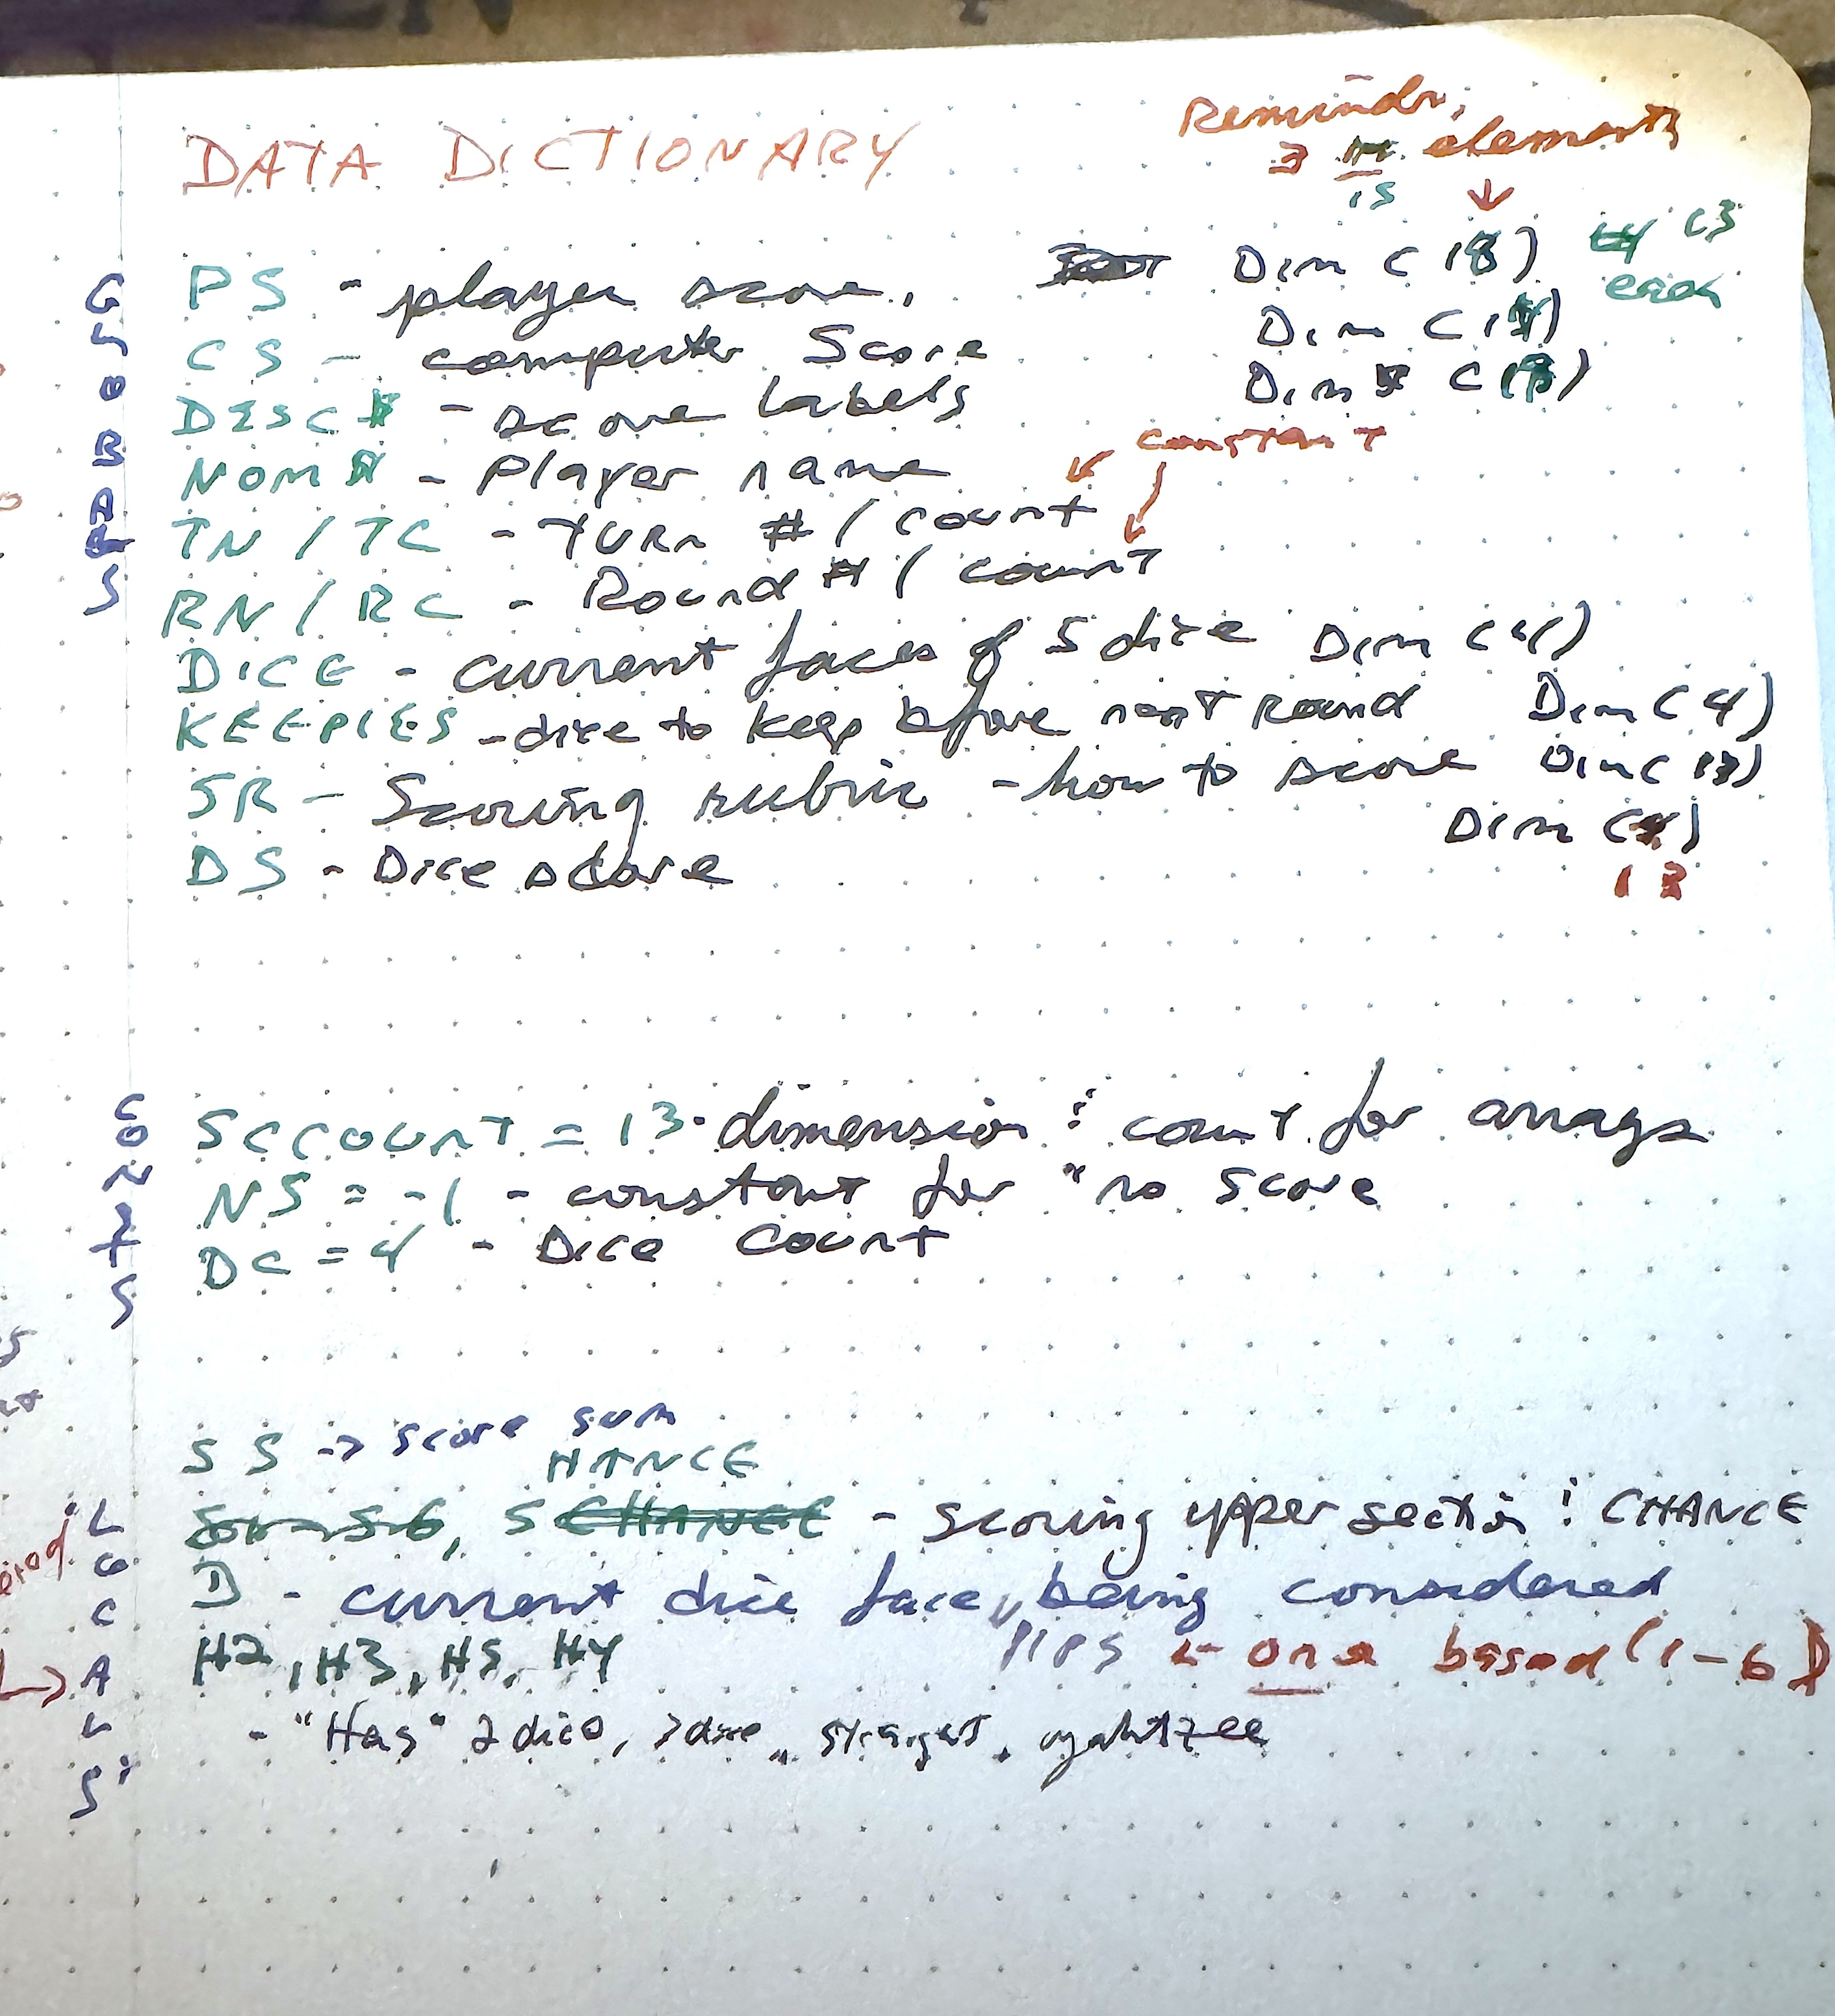 DATA DICTIONARY
Reminder,
∃ elements
15
GLOBALS
PS - player score. Dim ( 13
each
CS - computer Score Dim (
DESC$ - score labels Dim (
constant
NOM$ - Player name
TN / TC - TURN # / count
RN / RC - Round # / count
DICE - current faces of 5 dice Dim (4)
KEEPIES - dice to keep before next round Dim (4)
SR - Scoring rubric - how to score Dim (13)
DS - Dice score Dim (
13
CONSTS
SCCOUNT = 13 - dimension & count for arrays
NS = -1 - constant for "no score
DC = 4 - Dice Count
LOCALS
SS -> score sum
HANCE
S CHANCE - scoring upper section & CHANCE
D - current dice face, being considered
PIPS <- one based (1-6)
H2, H3, HS, HY
- "Has" 2 dice, 3 dice, straight, yahtzee